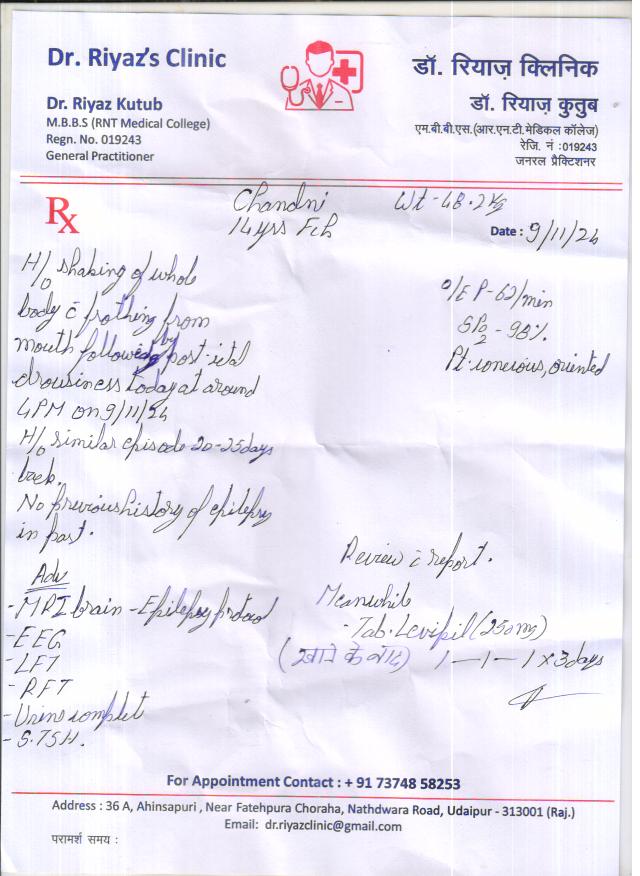 Dr. Riyaz's Clinic
Dr. Riyaz Kutub
M.B.B.S (RNT Medical College)
Regn. No. 019243
General Practitioner
डॉ. रियाज़ क्लिनिक
डॉ. रियाज़ कुतुब
एम.बी.बी.एस.(आर.एन.टी.मेडिकल कॉलेज)
रेजि. नं :019243
जनरल प्रैक्टिशनर
Rx
Chandni
14 yrs Fch
Wt - 48.2 kg
Date : 9/11/24
H/o shaking of whole
body c̄ frothing from
mouth followed by post-ictal
drousiness today at around
4 PM on 9/11/24
H/o similar episode 20-25 days
back.
No previous history of epilepsy
in past.
O/E P-62/min
SPO2 - 98%.
Pt. concious, oriented
Adv
- MRI brain - Epilepsy protocol
- EEG
- LFT
- RFT
- Urine complet
- S. TSH.
Review c̄ report.
Meanwhile
- Tab. Levipil (250 mg)
(खाने के बाद) 1 — 1 — 1 x 3 days
For Appointment Contact : + 91 73748 58253
Address : 36 A, Ahinsapuri , Near Fatehpura Choraha, Nathdwara Road, Udaipur - 313001 (Raj.)
Email: dr.riyazclinic@gmail.com
परामर्श समय :